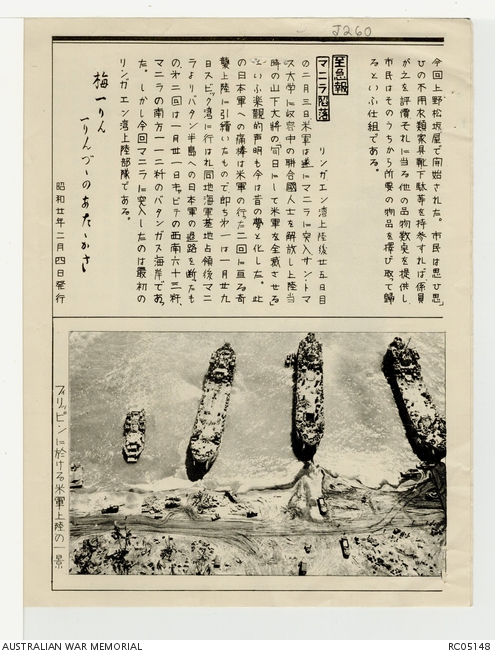 J260
今回上野松坂屋で開始された。市民は思ひ思
ひの不用衣類家具靴下駄等を持参すれば、係員
が之を評價それに当る他の品物数点を提供し、
市民はそのうちから所要の物品を擇び取って歸
るといふ仕組である。
至急報
マニラ陥落
リンガエン湾上陸後廿五日目
の二月三日米軍は遂にマニラに突入サント・マ
ス大学に收容中の聯合國人士を解放し上陸当
時の山下大将の「旬日にして米軍を全滅させる」
といふ楽観的声明も今は昔の夢と化した。此
の日本軍への痛棒は米軍の行た二回に亘る奇
襲上陸に引續いたもので即ち第一は一月廿九
日スビック湾に行はれ同地海軍基地占領後マニ
ラよりバタン半島への日本軍の退路を断たもの
第二回は一月卅一日キャビテの西南六十三粁、
マニラの南方一一二粁のバタンガス海岸であっ
た。しかし今回マニラに突入したのは最初の
リンガエン湾上陸部隊である。
梅一りん
一りんづゝのあたゝかさ
昭和廿年二月四日発行
フィリッピンに於ける米軍上陸の一景
AUSTRALIAN WAR MEMORIAL
RC05148